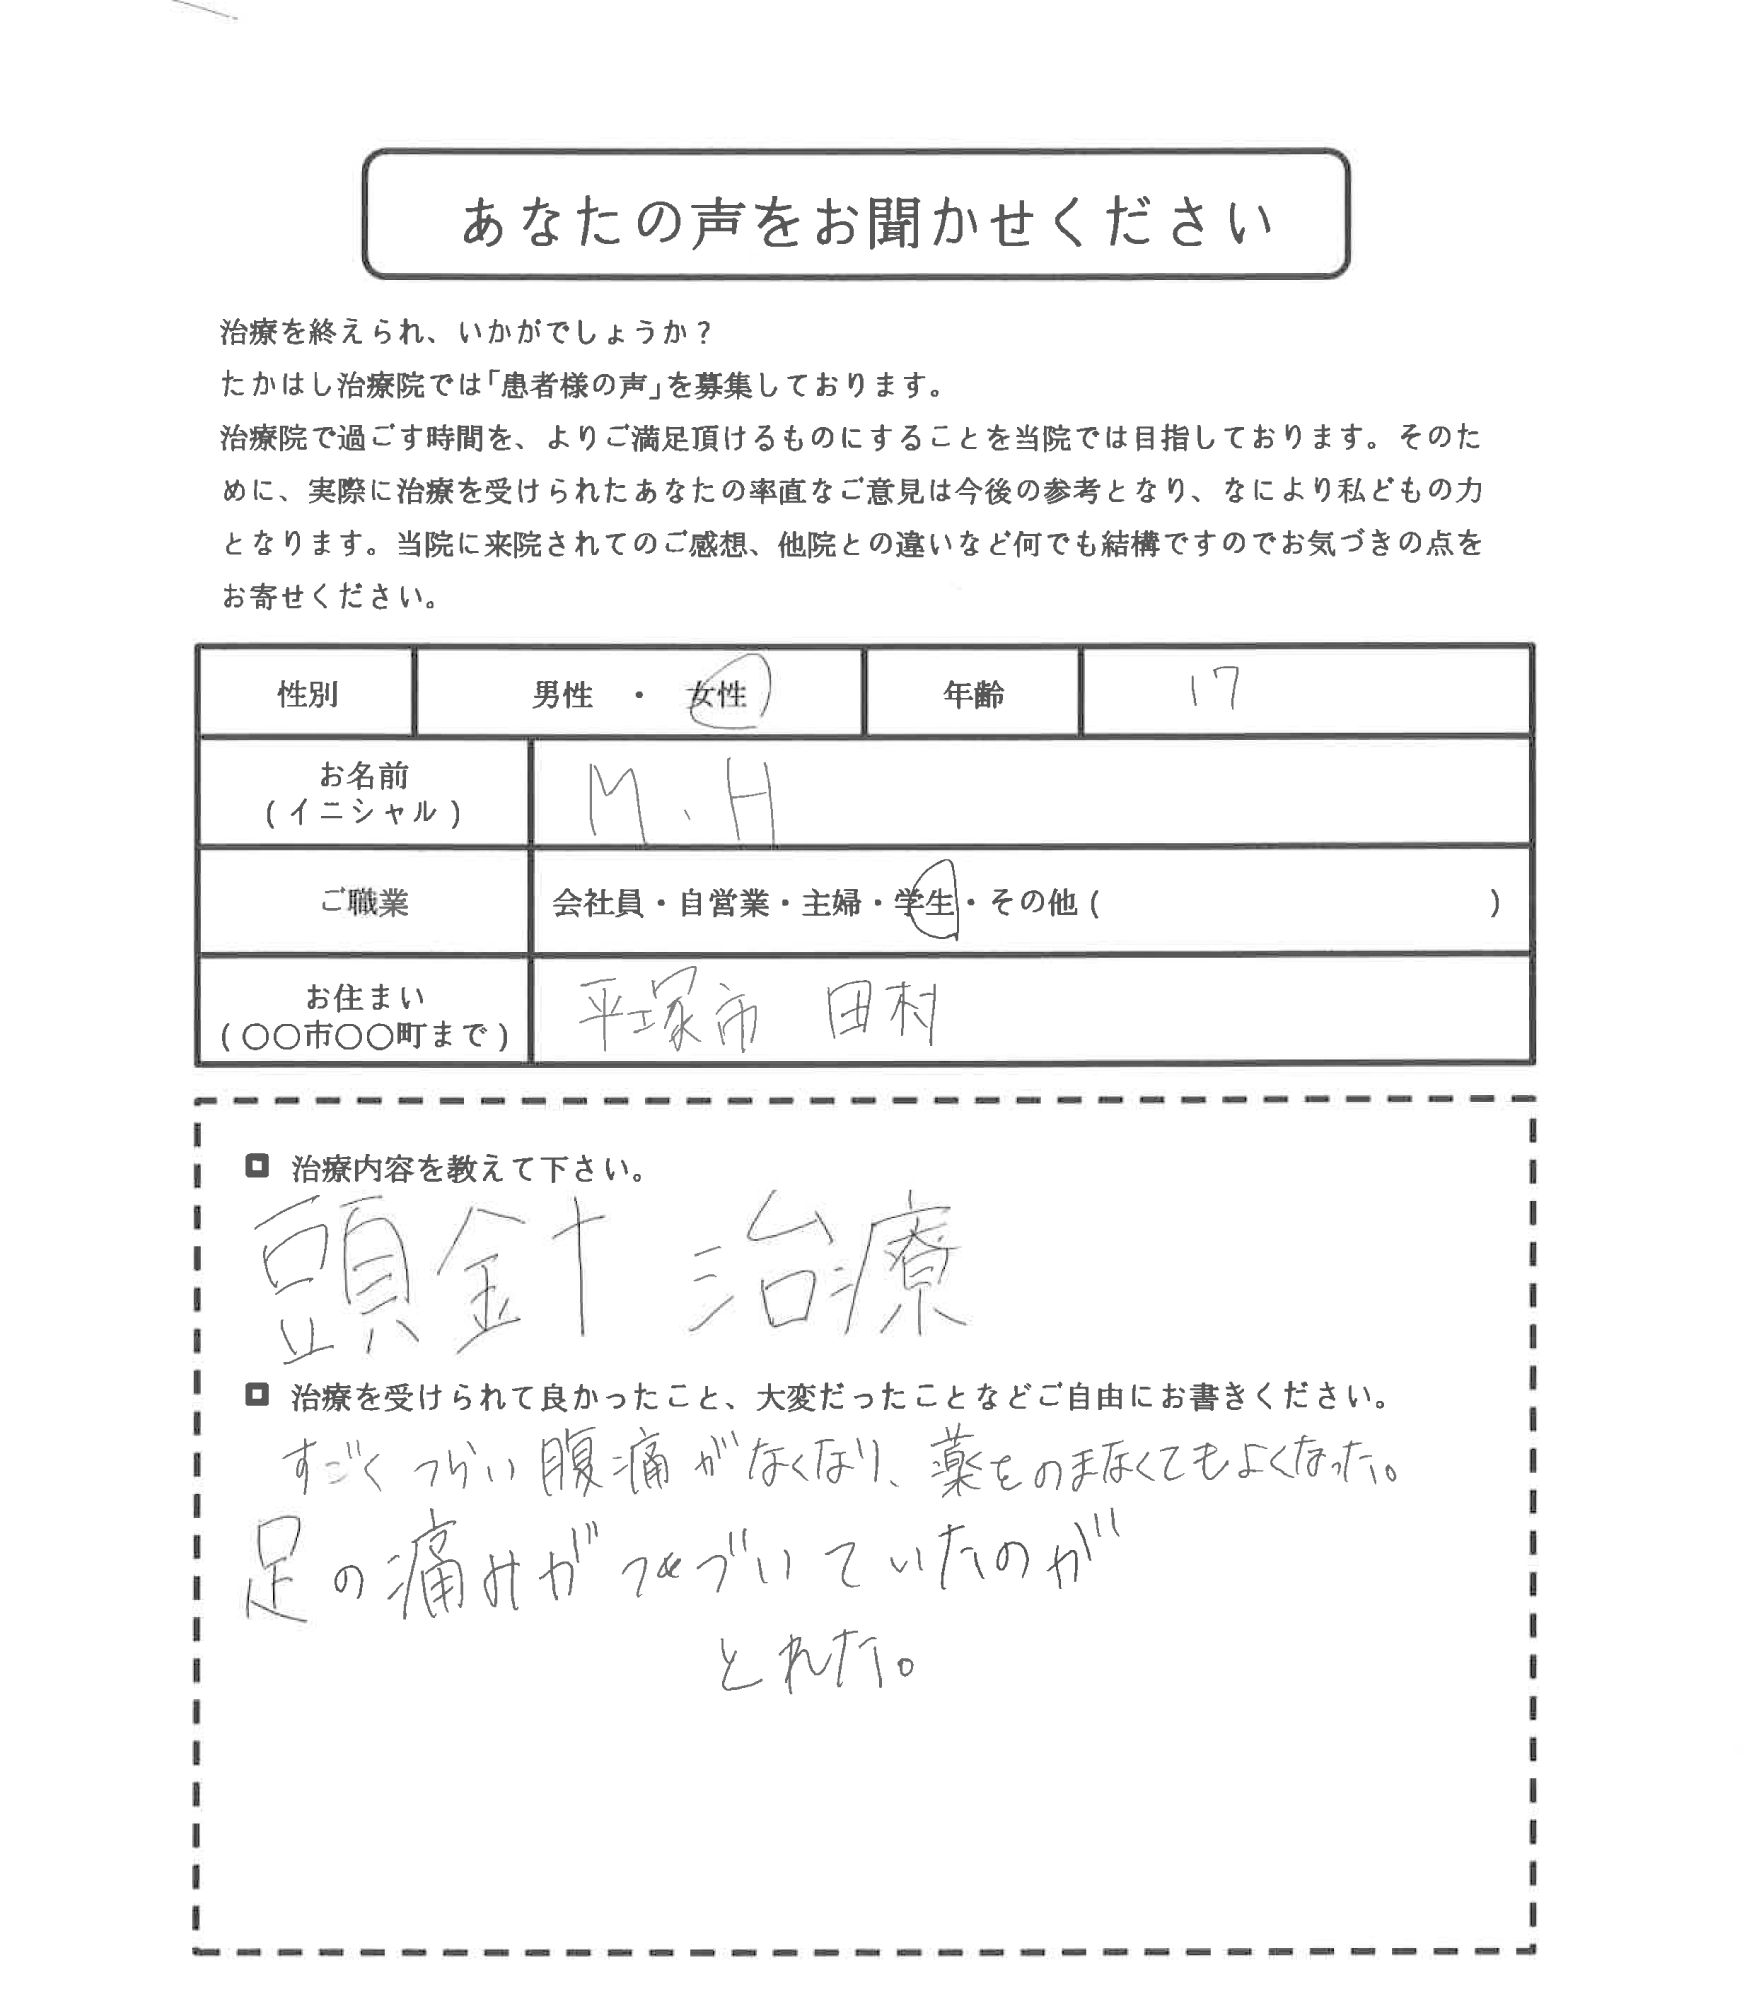 あなたの声をお聞かせください
治療を終えられ、いかがでしょうか？
たかはし治療院では「患者様の声」を募集しております。
治療院で過ごす時間を、よりご満足頂けるものにすることを当院では目指しております。そのた
めに、実際に治療を受けられたあなたの率直なご意見は今後の参考となり、なにより私どもの力
となります。当院に来院されてのご感想、他院との違いなど何でも結構ですのでお気づきの点を
お寄せください。
性別 男性 ・ 女性 年齢 17
お名前
(イニシャル) M.H
ご職業 会社員・自営業・主婦・学生・その他( )
お住まい
(〇〇市〇〇町まで) 平塚市 田村
治療内容を教えて下さい。
頭針 治療
治療を受けられて良かったこと、大変だったことなどご自由にお書きください。
すごくつらい腹痛がなくなり、薬をのまなくてもよくなった。
足の痛みがつづいていたのが
とれた。